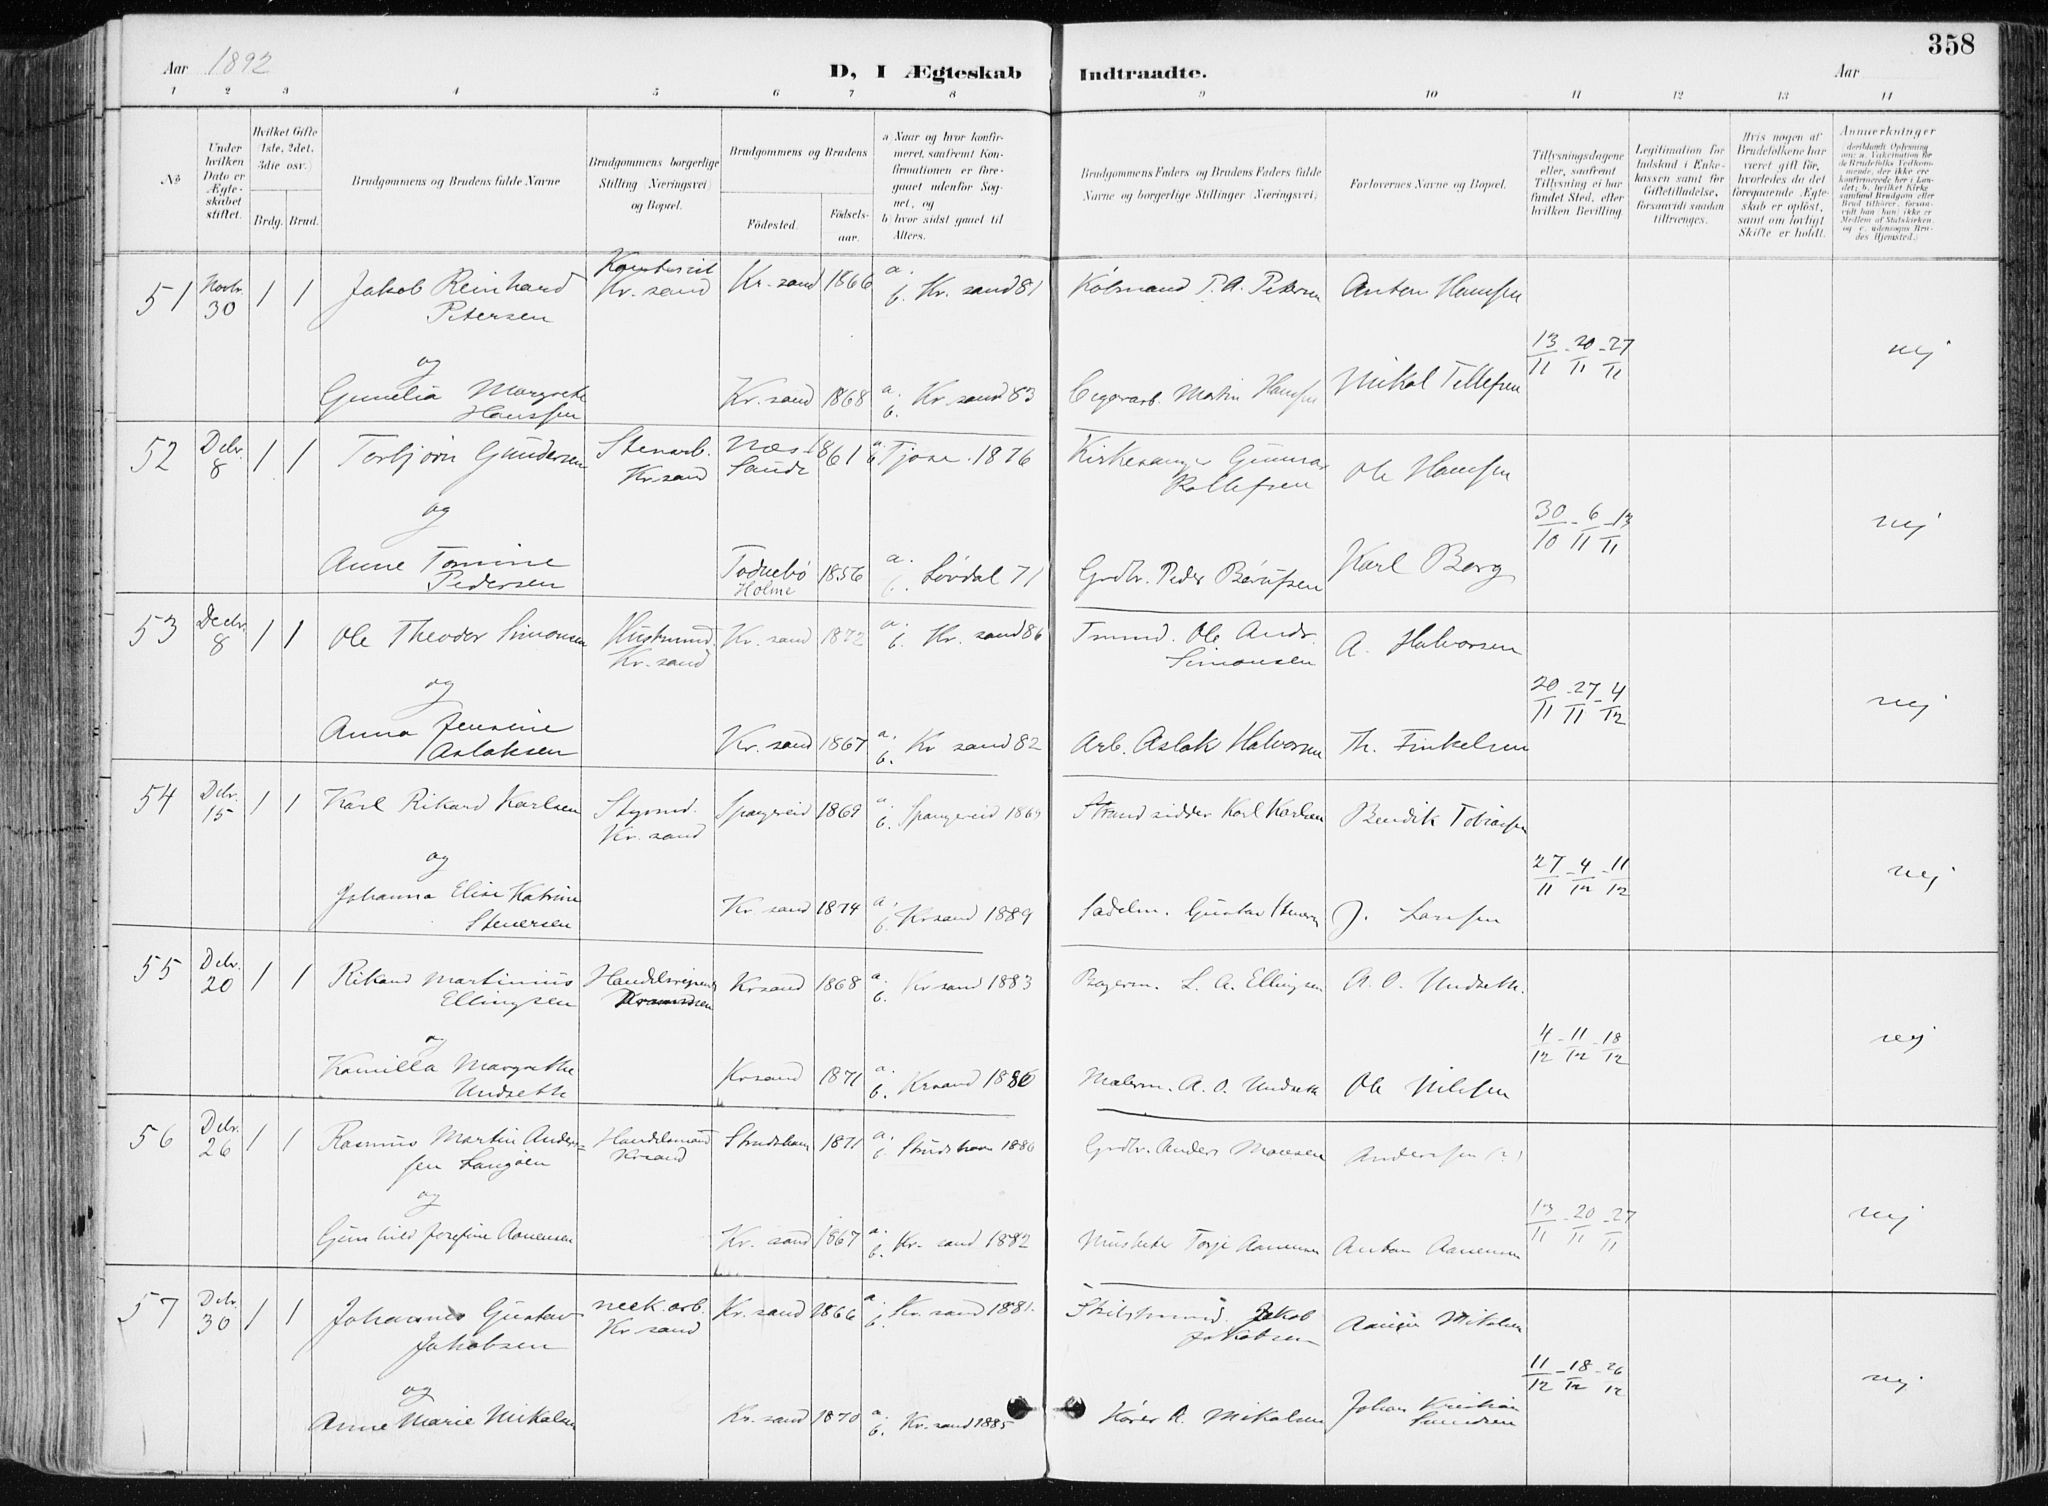 358
Aar 1892
D, I Ægteskab Indtraadte.
Aar
1 2 3 4 5 6 7 8 9 10 11 12 13 14
No
Under hvilken Dato er Ægteskabet stiftet.
Hvilket Gifte (1ste, 2det, 3die osv.)
Brdg. Brud.
Brudgommens og Brudens fulde Navne
Brudgommens borgerlige Stilling (Næringsvei) og Bopæl.
Brudgommens og Brudens
Födested.
Födselsaar.
a) Naar og hvor konfirmeret, saafremt Konfirmationen er foregaaet udenfor Sognet, og
b) hvor sidst gaaet til Alters.
Brudgommens Faders og Brudens Faders fulde Navne og borgerlige Stillinger (Næringsvei).
Forlovernes Navne og Bopæl.
Tillysningsdagene eller, saafremt Tillysning ei har fundet Sted, efter hvilken Bevilling.
Legitimation for Indskud i Enkekassen samt for Giftetilladelse, forsaavidt saadan tiltrænges.
Hvis nogen af Brudefolkene har været gift før, hvorledes da det foregaaende Ægteskab er oplöst, samt om lovligt Skifte er holdt.
Anmærkninger
51 Novbr. 30 1 1 Jakob Reinhard Petersen Kr. sand Kr. sand 1866 a. b. Kr. sand 81 Kjøbmand P. A. Petersen Anton Hanssen
13/11 - 20/11 - 27/11 nej
og
Gunelia Margrete Hanssen Kr. sand 1868 a. b. Kr. sand 83 Cigararb. Martin Hanssen Mikal Tellefsen
52 Debr. 8 1 1 Torbjørn Gundersen Stenarb. Kr. sand Næs Saude 1861 a. b. Tjose. 1876 Kirkesanger Gunnar Rollefsen Ole Hanssen
30/10 - 6/11 - 13/11 nej
og
Anne Tomine Pedersen Todnebø Holme 1856 a. b. Løvdal 71 Grdbr. Peder Børufsen Karl Berg
53 Decbr. 8 1 1 Ole Theodor Simonsen Kr. sand Kr. sand 1872 a. b. Kr. sand 86 Tmmd. Ole Andr. Simonsen A. Halvorsen
20/11 - 27/11 - 4/12 nej
og
Anna Jensine Aslaksen Kr. sand 1867 a. b. Kr. sand 82 Arb. Aslak Halvorsen Th. Finkelsen
54 Debr. 15 1 1 Karl Rikard Karlsen Styrmd. Kr. sand Spangereid 1869 a. b. Spangereid 1869 Strandsidder Karl Karlsen Bendik Tobiassen
27/11 - 4/12 - 11/12 nej
og
Johanna Elise Katrine Stenersen Kr. sand 1874 a. b. Kr sand 1889 Sadelm. Gustav Stenersen J. Larssen
55 Debr. 20 1 1 Rikard Martinius Ellingsen Krsand 1868 a. b. Kr sand 1883 Bagerm. L. A. Ellingsen A. O. Undseth.
4/12 - 11/12 - 18/12 nej
og
Kamilla Margrethe Undseth Krsand 1871 a. b. Krsand 1886 Malerm. A. O. Undseth Ole Nilssen
56 Debr. 26 1 1 Rasmus Martin Anderssen Langøen Handelsmand Krsand 1871 a. b. 1886 Grdbr. Anders Monsen Anderssen (?)
13/11 - 20/11 - 27/11 nej
og
Gunhild Josefine Aanensen Kr. sand 1867 a. b. Kr. sand 1882 Musketer Torje Aanensen Anton Aanensen
57 Debr. 30 1 1 Johannes Gustav Jakobsen mek. arb. Kr. sand Kr. sand 1866 a. b. Kr. sand 1881. Jakob Jakobsen Mikalsen
11/12 - 18/12 - 26/12 nej
og
Anne Marie Mikalsen Kr. sand 1870 a. b. Kr. sand 1885 Mikalsen Johan Kristian